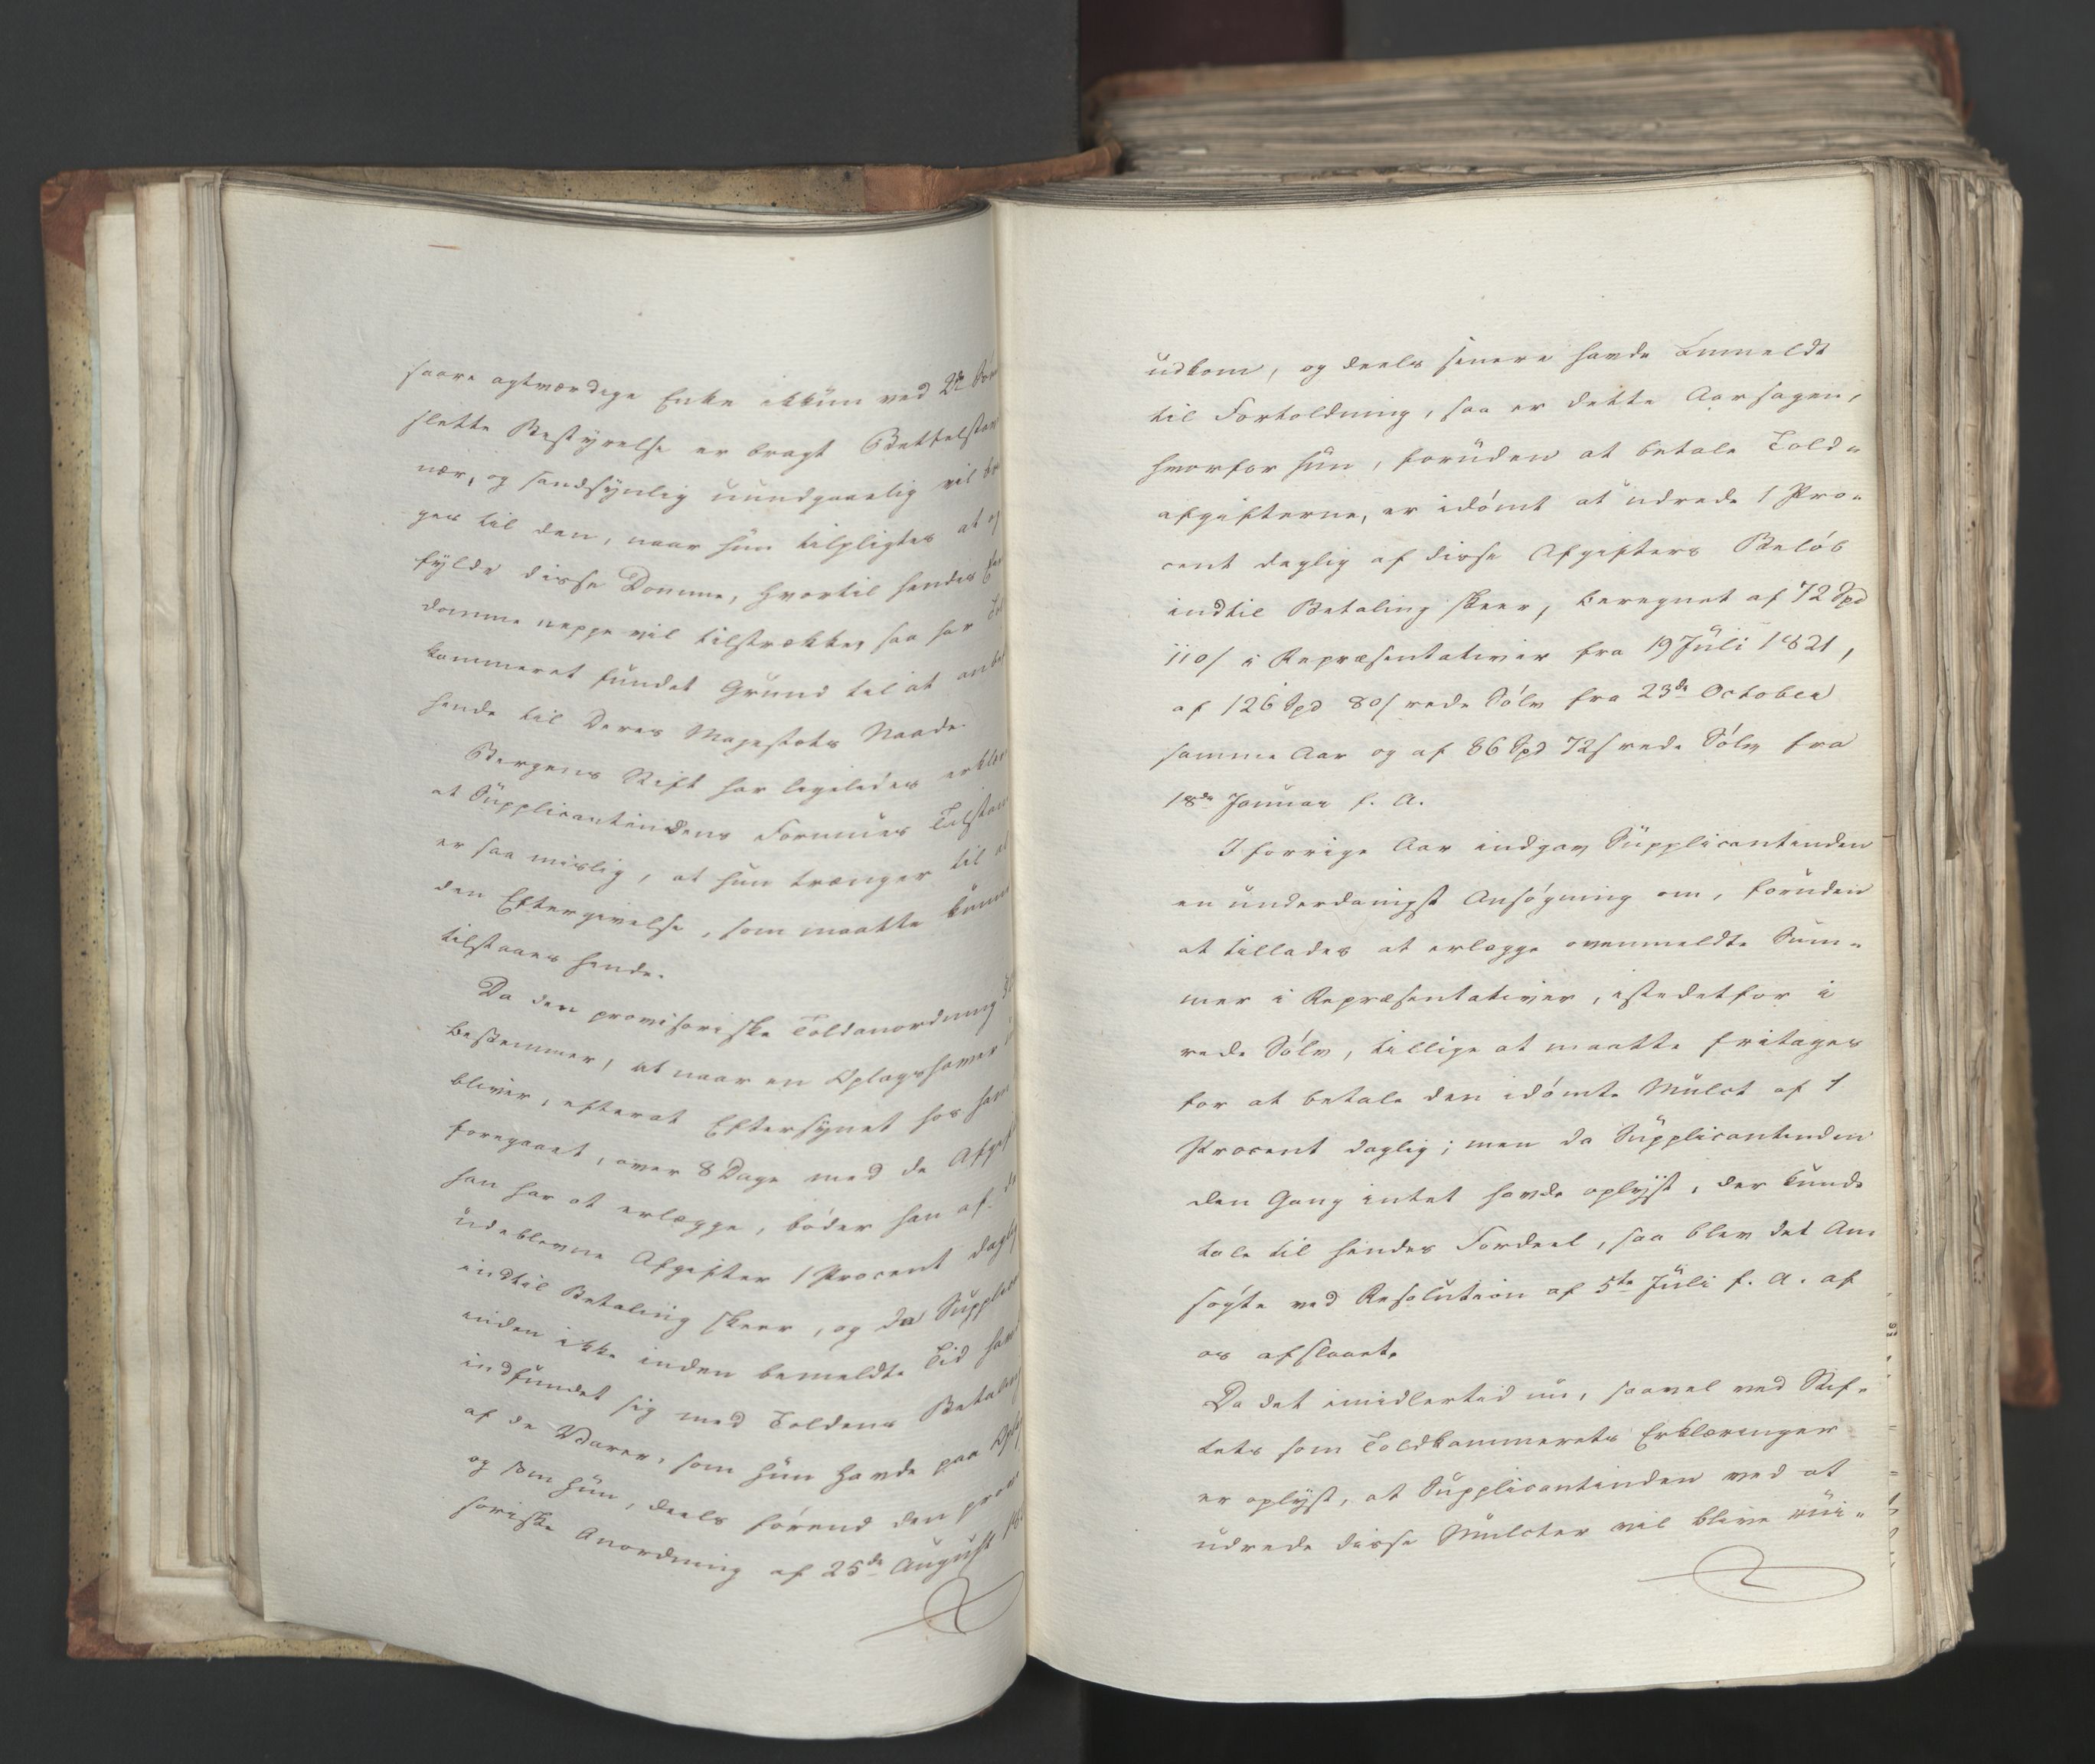 saare agtværdige Enke ikkun ved 2de
slette Bestyrelse er bragt Bettelstav
nær, og sandsynlig uundgaaelig vil
ges til den, naar hun tilpligtes at
fylde disse Domme, hvortil hendes
domme neppe vil tilstrække, saa har
kammeret fundet Grund til at
hende til Deres Majestæts Naade.
Bergens Stift har ligeledes
at Supplicantindens Formues
er saa mislig, at hun trænger til
den Eftergivelse, som maatte
tilstaaes hende.
Da den provisoriske Toldanordning
bestemmer, at naar en Oplagshaver
bliver, efterat Eftersynet hos
foregaaet, over 8 Dage med de
han har at erlægge, bøder han af
udeblevne Afgifter 1 Procent
indtil Betaling skeer, og da
inden ikke inden bemeldte Tid
indfundet sig med Toldens
af de Varer, som hun havde paa
og som hun, deels førend den
soriske Anordning af 25de August
udkom, og deels senere havde Anmeldt
til Fortoldning, saa er dette Aarsagen,
hvorfor hun, foruden at betale Told-
afgifterne, er idømt at udrede 1 Pro-
cent daglig af disse Afgifters Beløb
indtil Betaling skeer, beregnet af 72 Spd
110 s i Repræsentativer fra 19 Juli 1821,
af 126 Spd 80 s rede Sølv fra 23de October
samme Aar og af 86 Spd 72 s rede Sølv fra
18de Januar f. A.
I forrige Aar indgav Supplicantinden
en underdanigst Ansøgning om, foruden
at tillades at erlægge ovenmeldte Sum-
mer i Repræsentativer, istedetfor i
rede Sølv, tillige at maatte fritages
for at betale den idømte Mulct af 1
Procent daglig; men da Supplicantinden
den Gang intet havde oplyst, der kunde
tale til hendes Fordeel, saa blev det An-
søgte ved Resolution af 5te Juli f. A. af
os afslaaet.
Da det imidlertid nu, saavel ved Stif-
tets som Toldkammerets Erklæringer
er oplyst, at Supplicantinden ved at
udrede disse Mulcter vil blive rui-